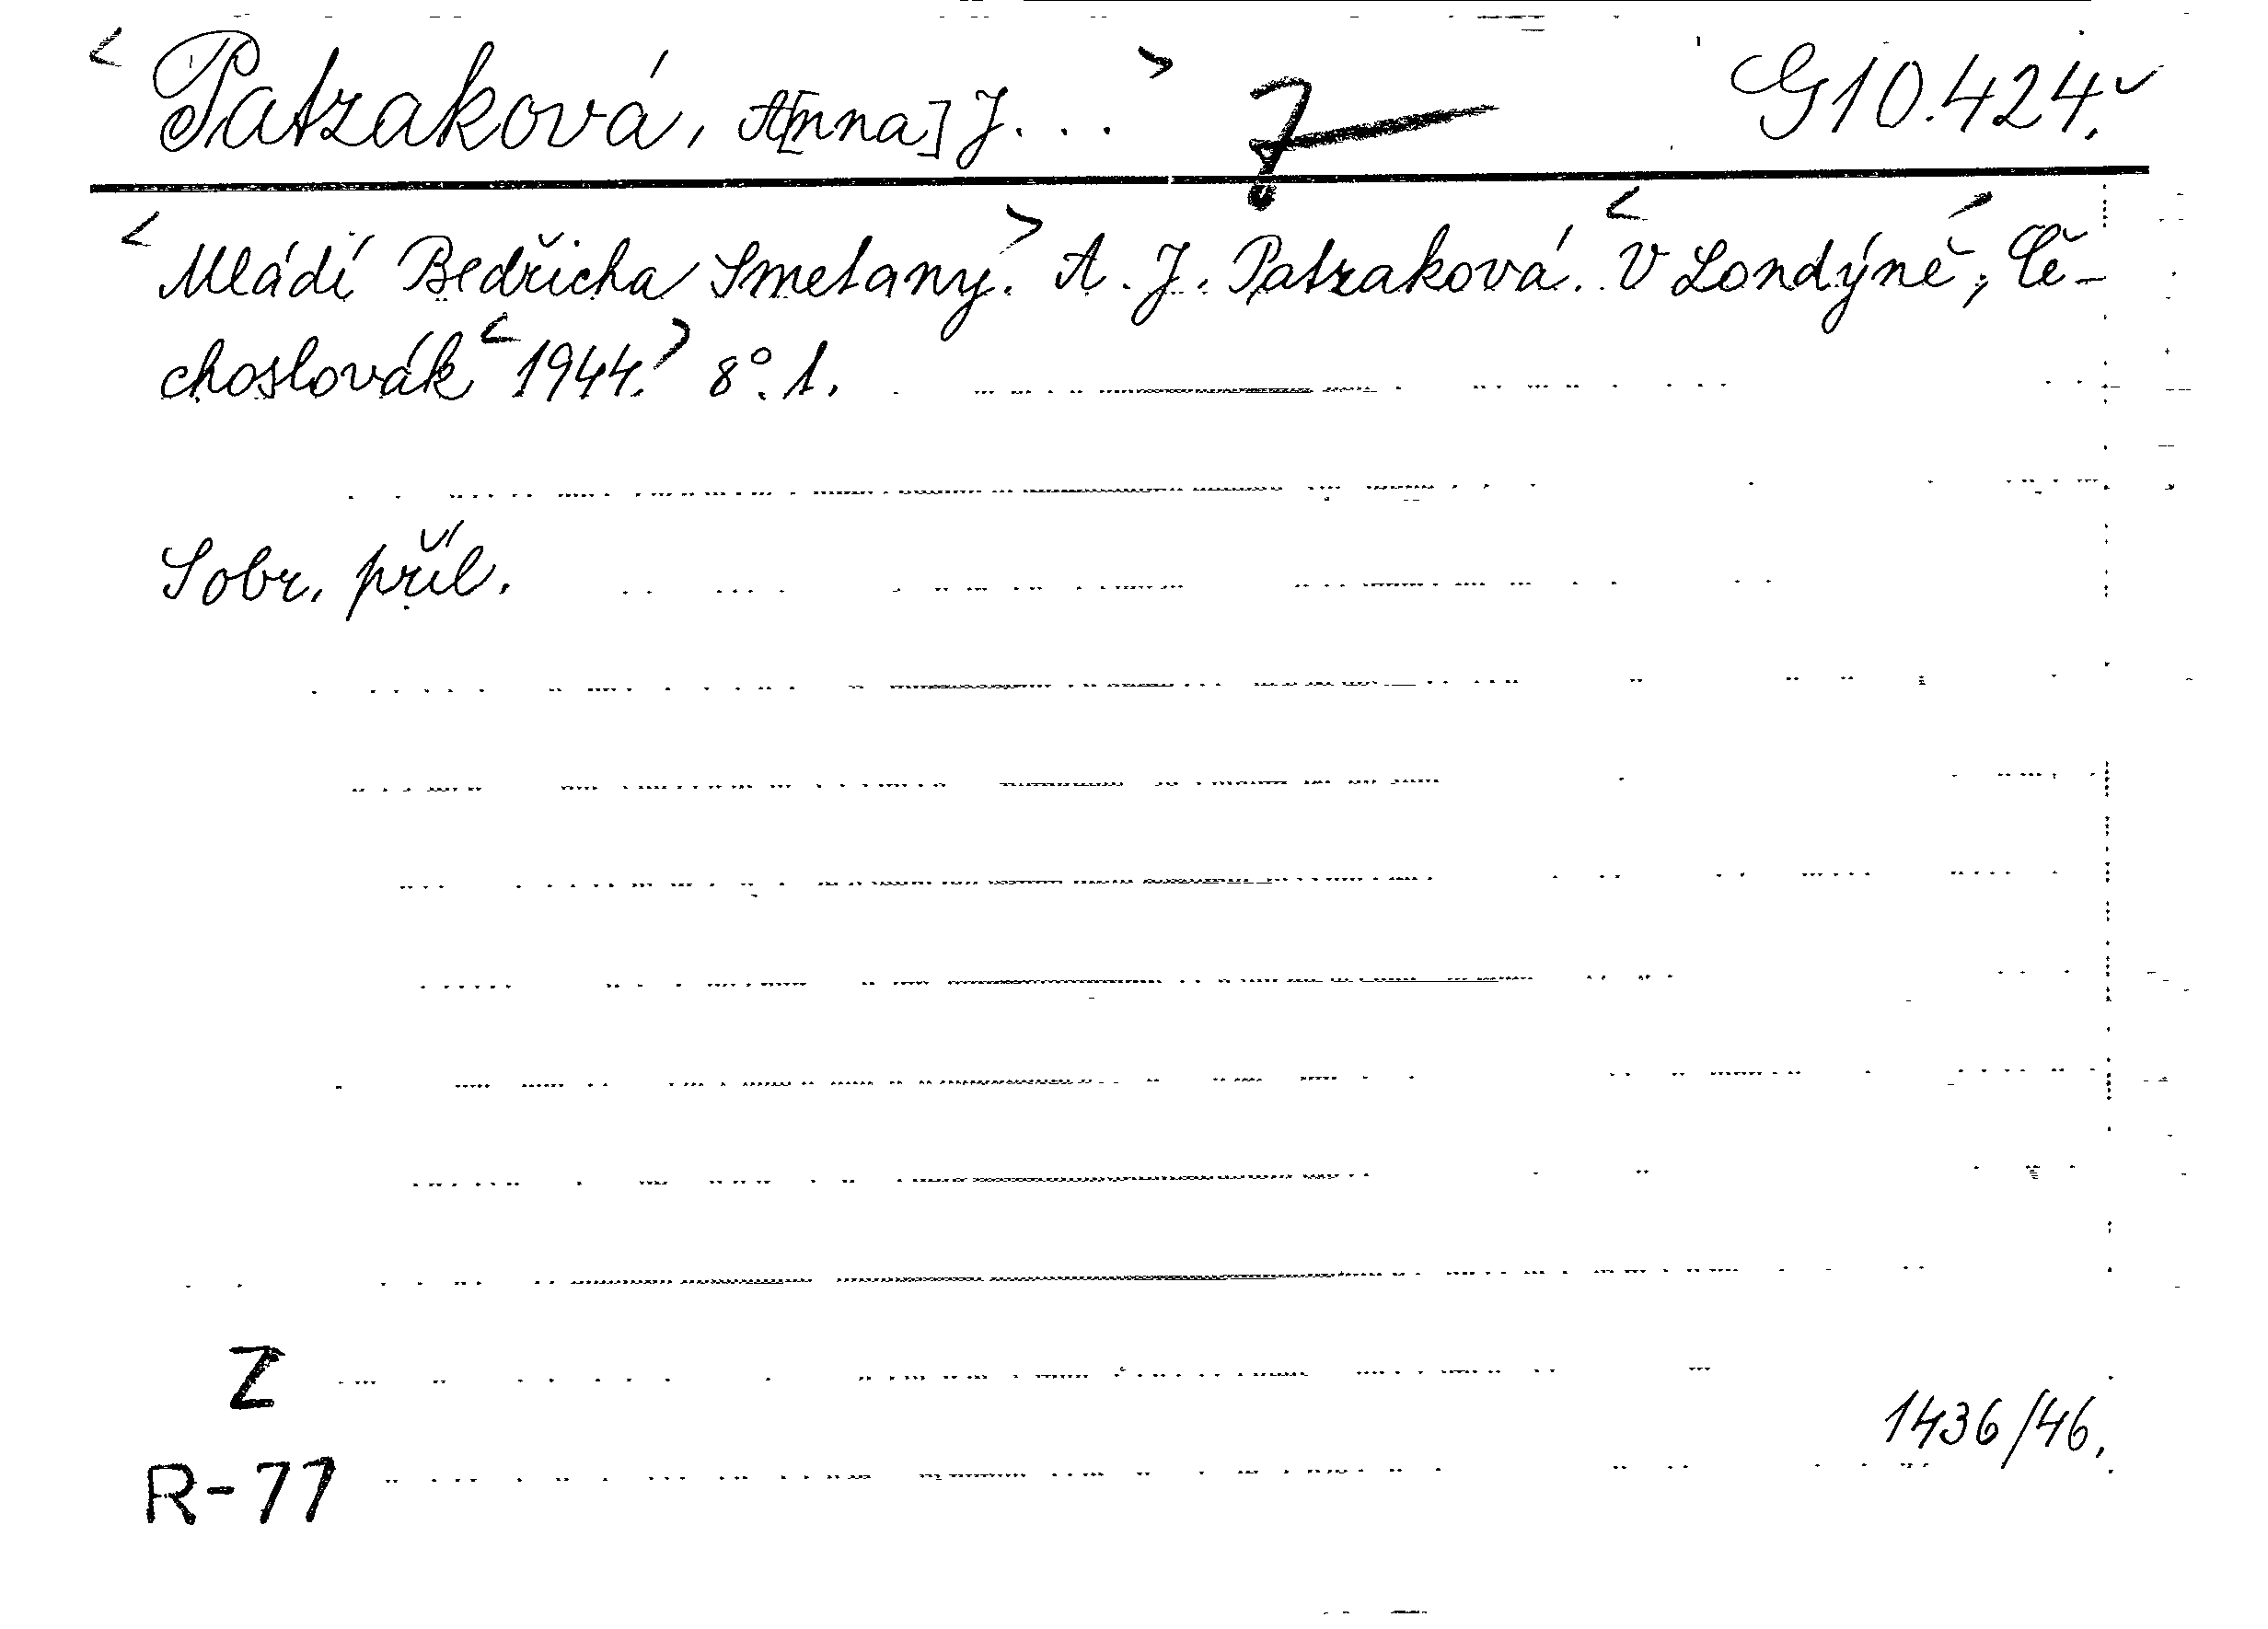 < Patzaková, A[nna] J... > 7 G10.424.
< Mládí Bedřicha Smetany. > A. J. Patzaková. < V Londýně, Če-
choslovák < 1944. > 8°. 1.
S obr. příl.
Z
1436/46.
R-77